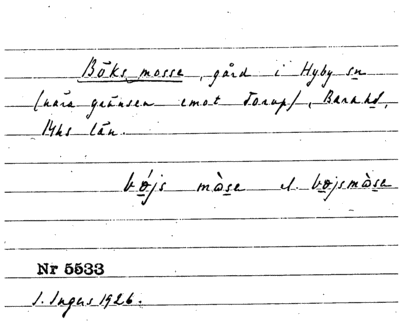 Böks mosse, gård i Hyby sn
(nära gränsen emot Torup), Bara hd,
Mhs län.
bǿjs mòse el. bøjsmòse
Nr 5533
I. Ingers 1926.